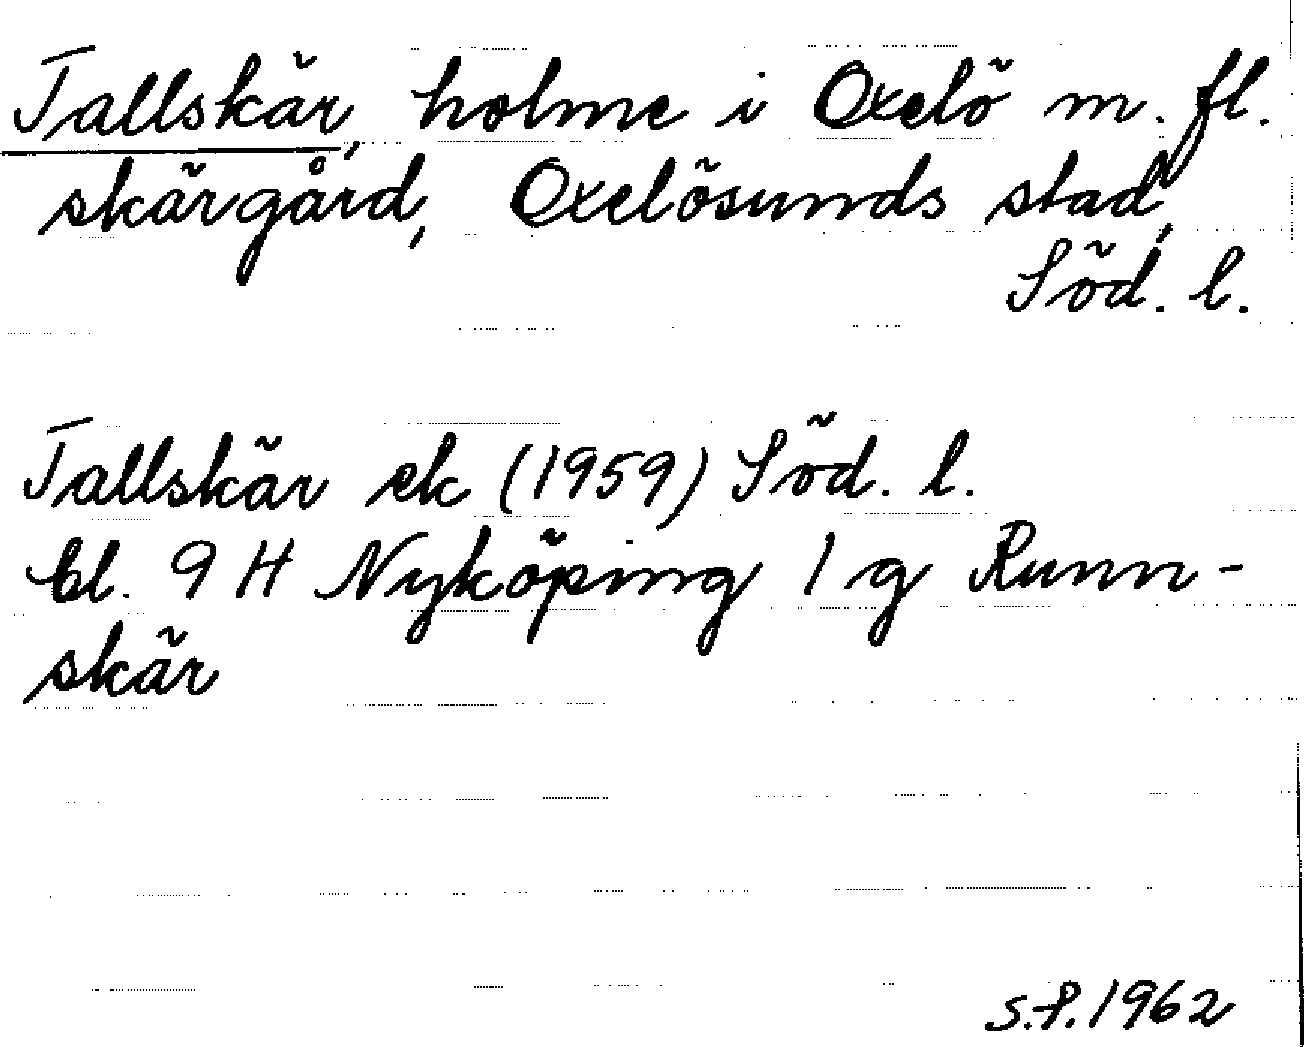 Tallskär, holme i Oxelö m. fl.
skärgård, Oxelösunds stad,
Söd. l.
Tallskär ek (1959) Söd. l.
bl. 9 H Nyköping 1 g Runn-
skär
S.P. 1962